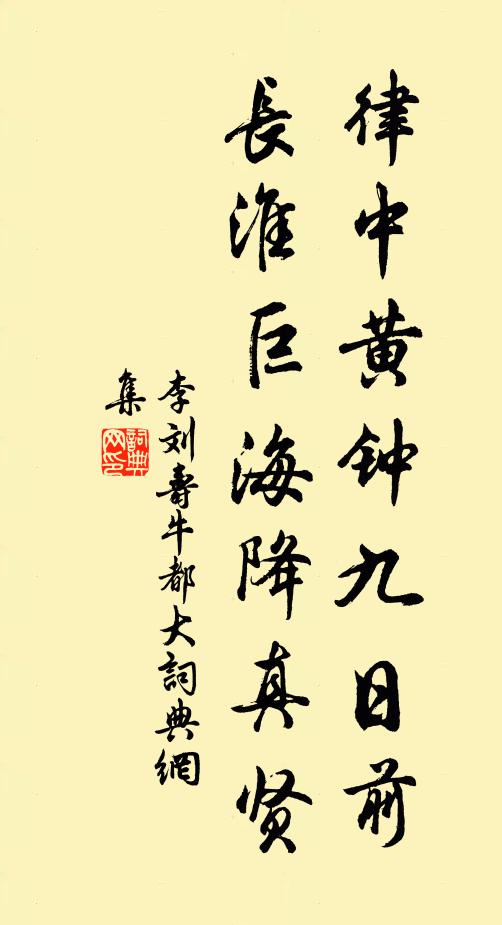 律中黄钟九日前
長淮巨海降真贤
李刘寿牛都大詞典網
集
詞典网印